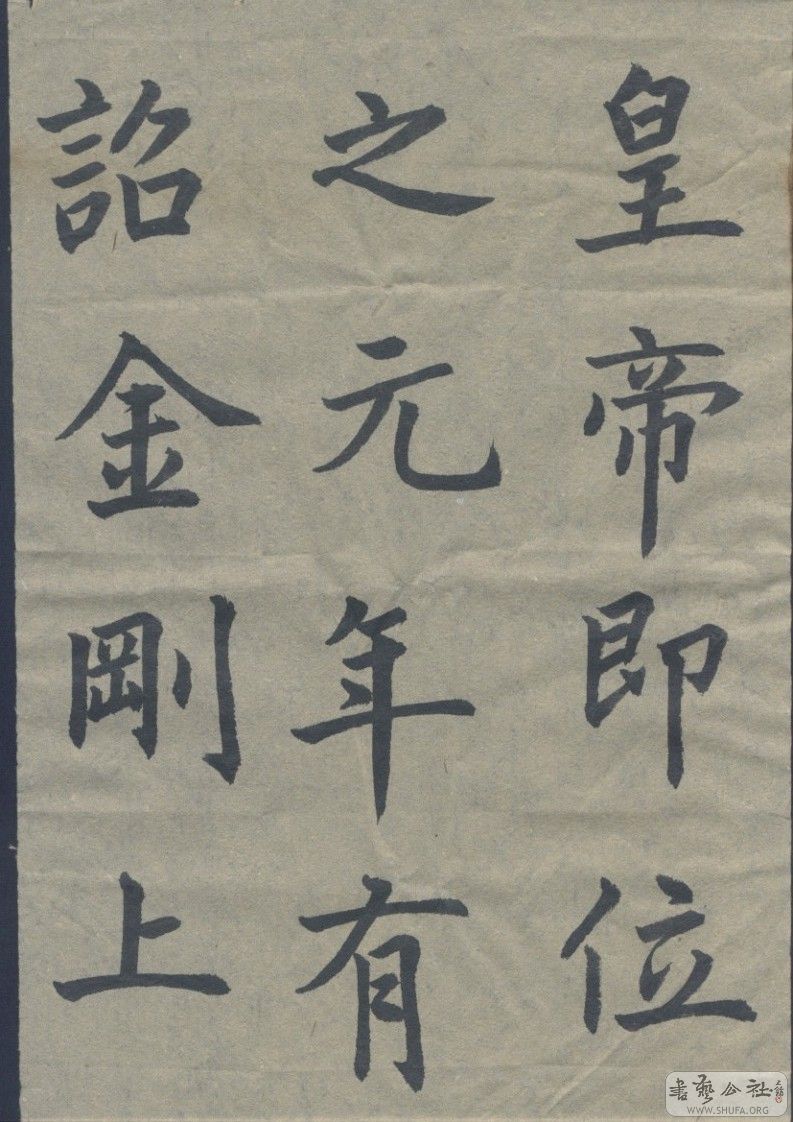 皇帝即位
之元年有
詔金剛上
書藝公社
WWW.SHUFA.ORG